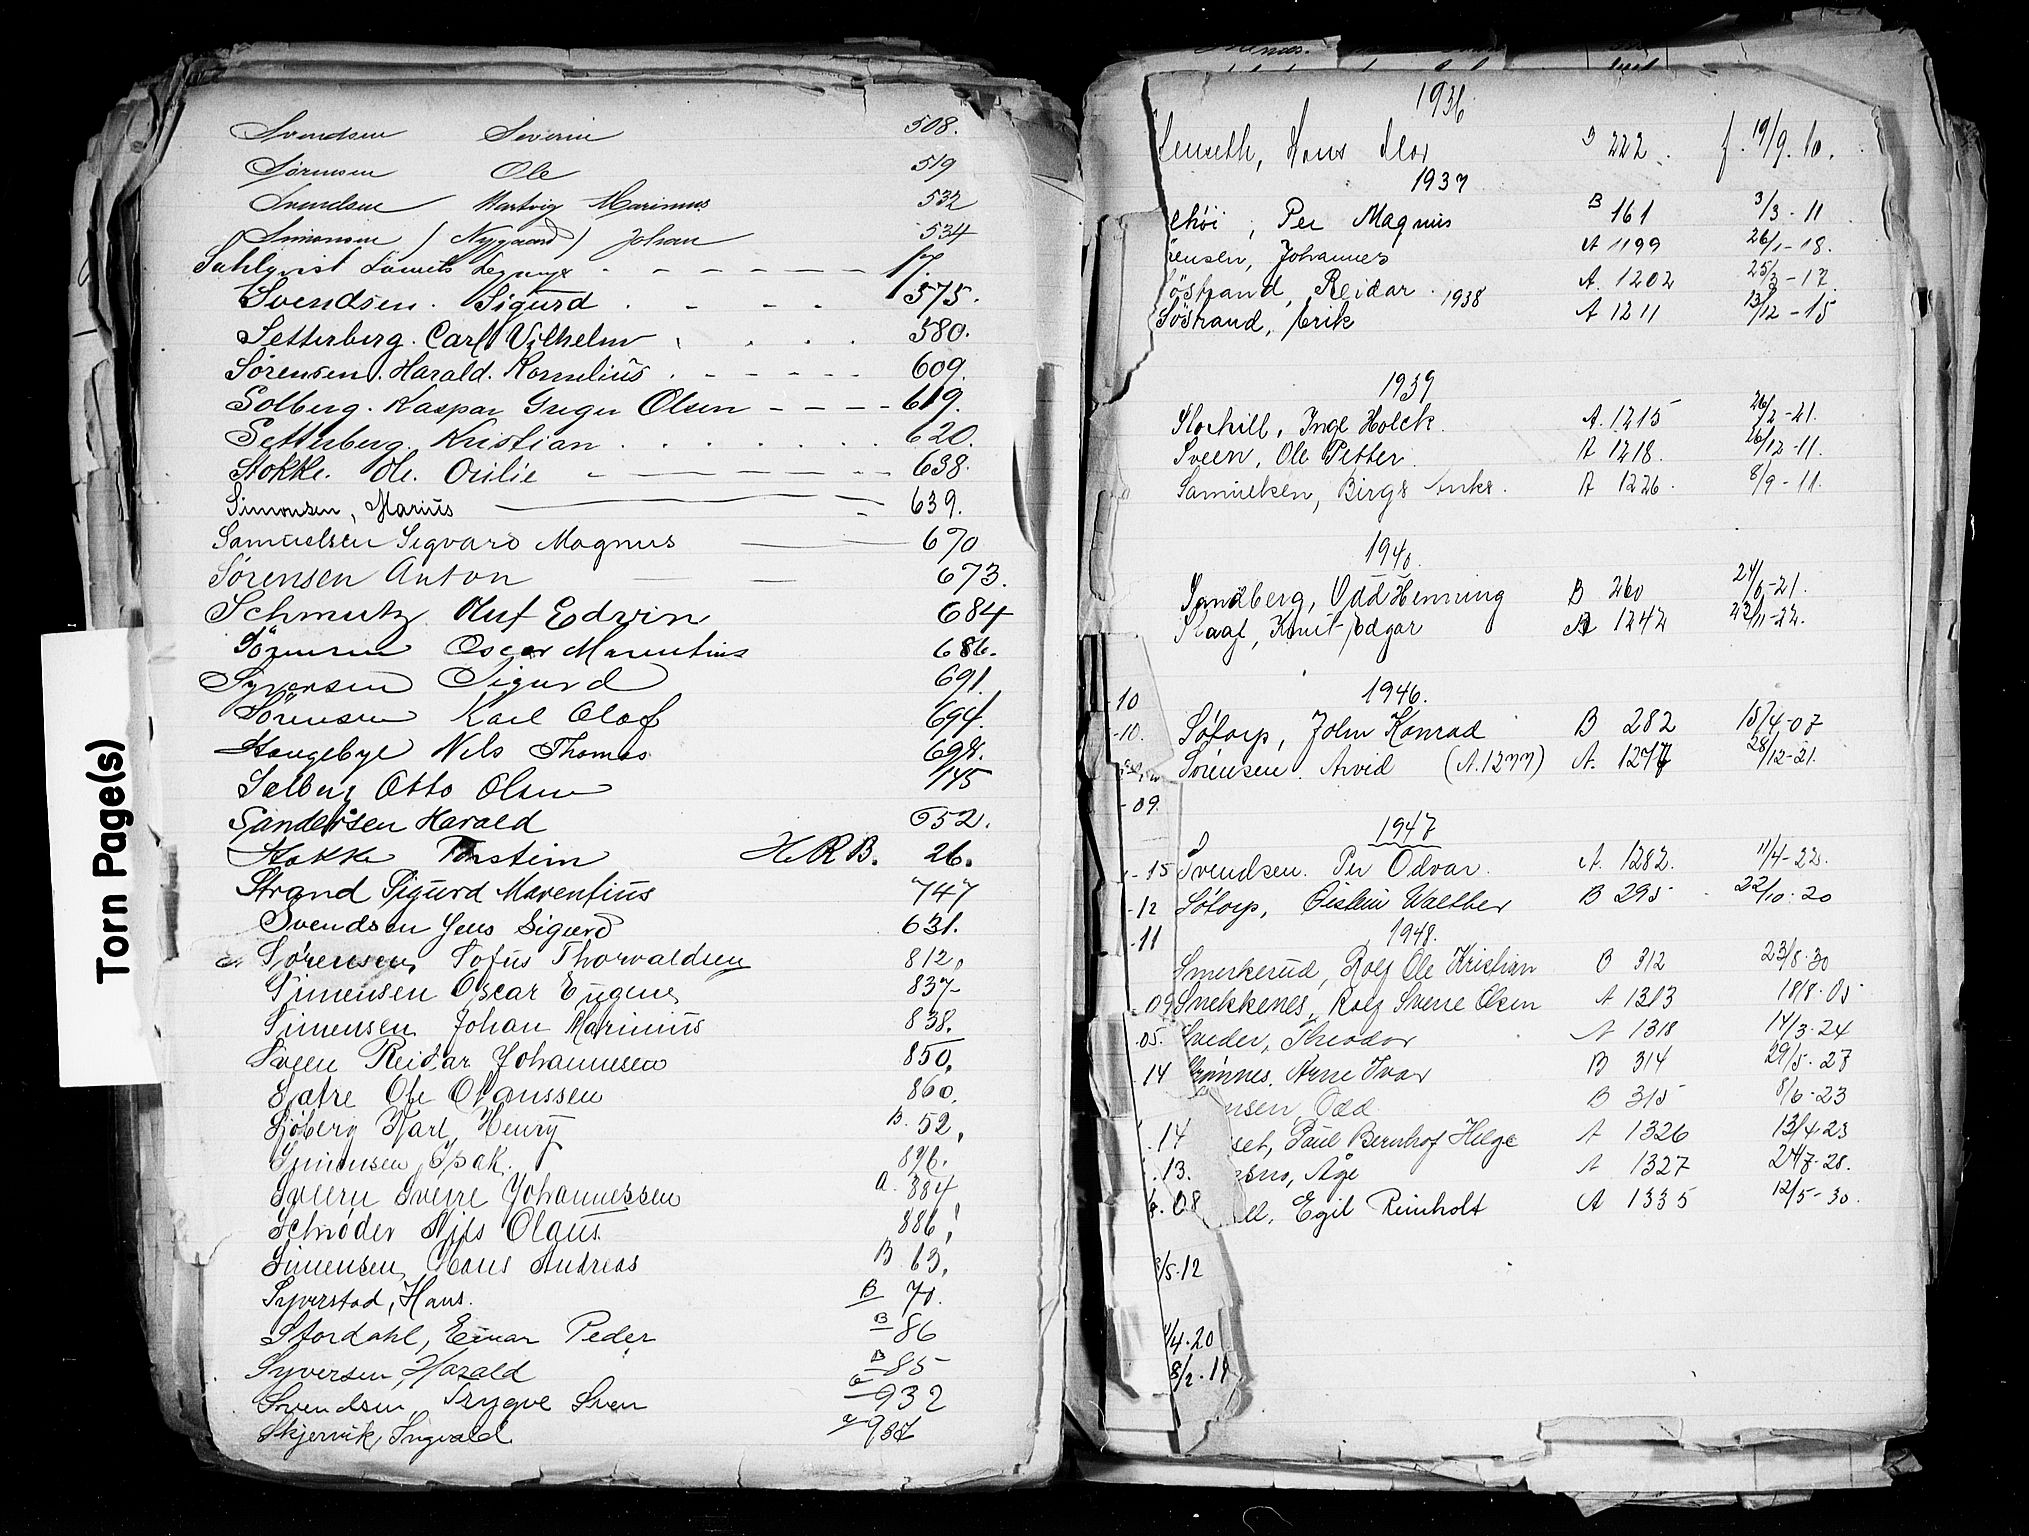 Torn Page(s)
Svendsen Severin 508.
Sørensen Ole 519
Svendsen Hartvig Marinius 532
Simonsen / Nygaard / Johan 534
Sahlqvist 17.
Svendsen. Sigurd 575.
Setterberg. Carl Vilhelm 580.
Sørensen. Harald. Kornelius 609.
Solberg. Kaspar Greger Olsen 619.
Setterberg. Kristian 620.
Stokke. Ole. Otilie 638.
Simonsen, Marius 639.
Samuelsen Sigvard Magnus 670
Sørensen Anton 673.
Schmutz Oluf Edvin 684
Sörensen Oscar Marentius 686.
Syversen Sigurd 691
Sörensen Karl Olaf 694.
Haugebye Nils Thomas 698.
Solberg Otto Olsen 145
Sandersen Harald 652.
Stokke Torstein H.R.B. 26.
Strand Sigurd Marentius 747
Svendsen Jens Sigurd 631.
Sørensen, Sofus Thorvaldsen 812,
Simensen Oscar Eugene 837-
Simensen Johan Marinius 838.
Sveen Reidar Johannesen 850,
Sætre Ole Olaussen 860,
Sjöberg Karl Henry B. 52,
Simonsen Isak. 896.
Sveen Sverre Johannessen a. 884
Schrøder Nils Olaus 886,
Simensen, Hans Andreas B 63,
Syverstad, Hans. B 70.
Stordahl, Einar Peder B 86
Syversen, Harald B 85
Svendsen, Trygve Sven 932
Skjervik, Ingvald 937
1936
Hans B 222. f. 19/9. 10.
1937
høi, Per Magnus B 161 3/3-11
ensen, Johannes A 1199 26/1-18.
östrand, Reidar. A. 1202 25/3-17.
1938
Söstrand, Erik A 1211 13/12-15
1939
Storhill, Inge Holck. A. 1215 26/2-21.
Sveen, Ole Petter. A 1218. 26/12-11.
Samuelsen, Birger A 1226. 8/9-11.
1940.
Sandberg, Odd Henning B 260 24/6-21.
Staaf, Knut Edgar A 1242 23/11-22.
1946.
-10
-10. Sötorp, John Konrad B 282 15/4-07
Sørensen. Arvid (A.1277) A. 1277 28/12-21.
-09.
1947
-15 Svendsen. Per Odvar. A. 1282. 11/4-22.
-12 Søtorp, Øistein Walther B 295 22/10-20
-11 1948.
Smerkerud, Rolf Ole Kristian B 312 23/8-30
-09 Snekkenes, Rolf Sverre Olsen A 1313 18/8-05
05. Sveder, Theodor A 1318 14/3-24
-14 Arne Ivar B 314 29/5-27
nsen, Odd B 315 8/6-23
-14 set, Paul Bernhof Helge A 1326 13/4-23
.13. Åge A 1327 24/7-28.
.08 ell, Egil Reinholt A 1335 12/5-30.
/5-12
/4-20
8/2-11